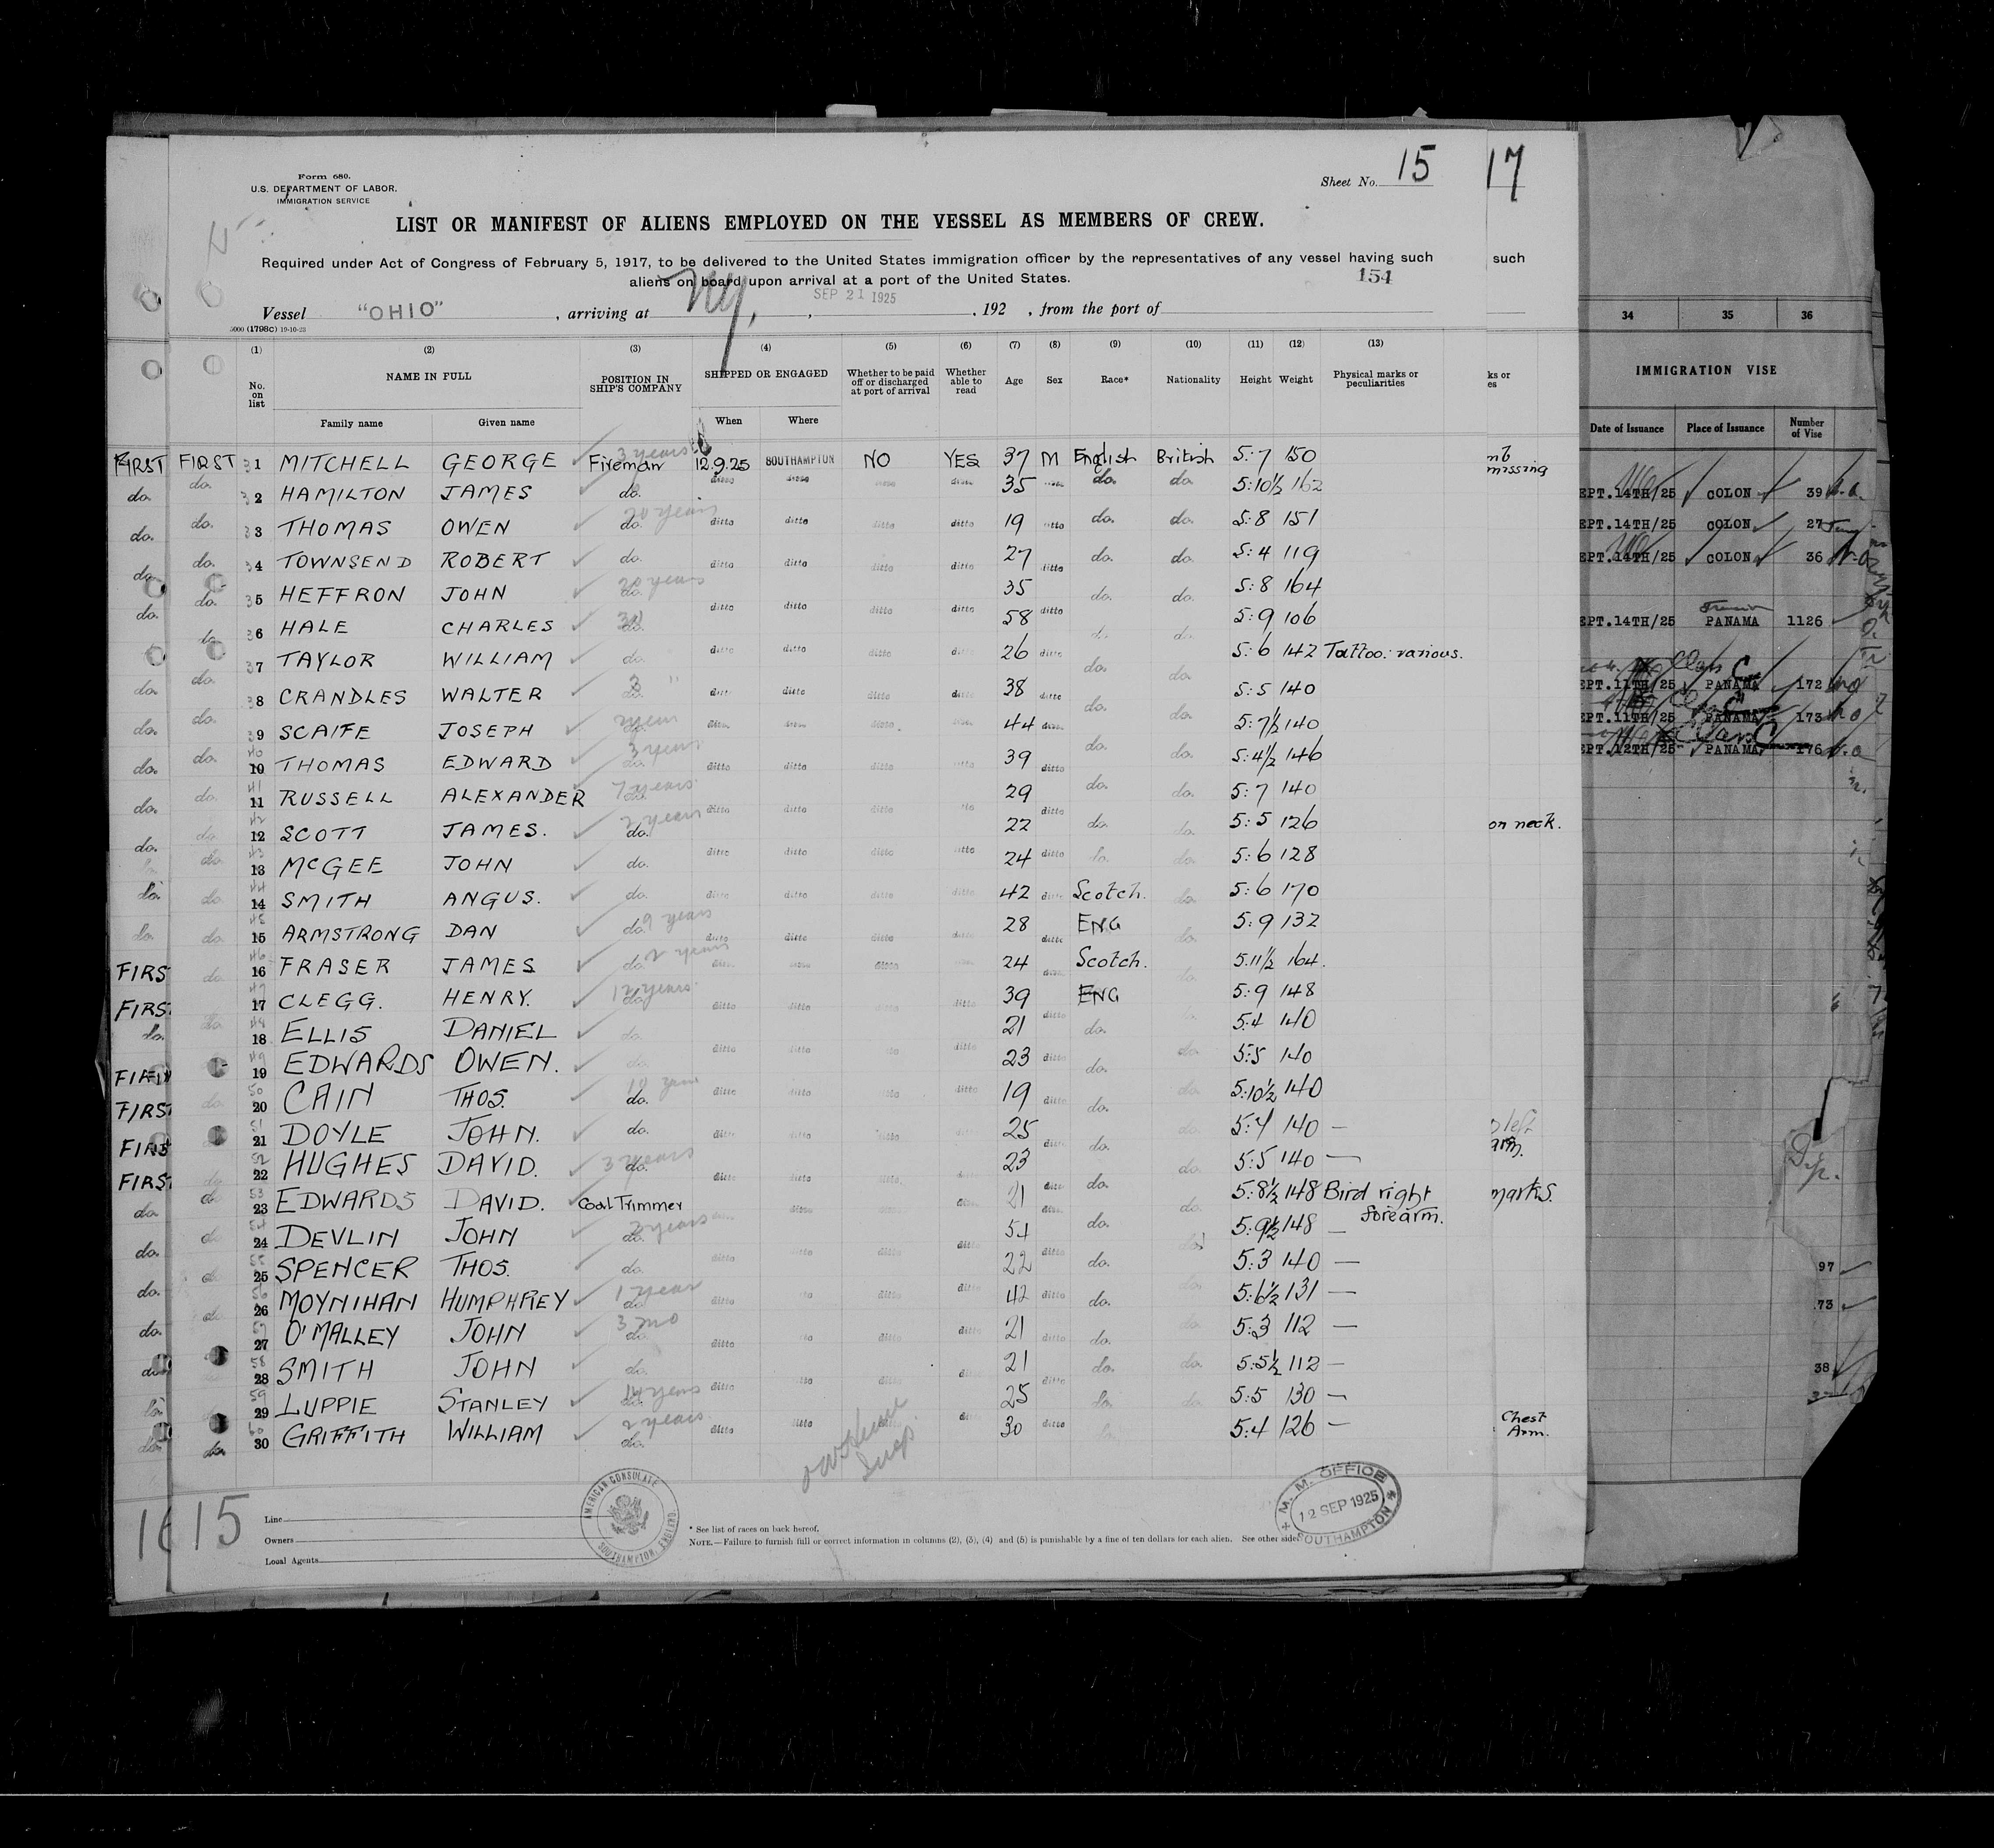 Form 680.
U.S. DEPARTMENT OF LABOR.
IMMIGRATION SERVICE
Sheet No. 15
17
LIST OR MANIFEST OF ALIENS EMPLOYED ON THE VESSEL AS MEMBERS OF CREW.
Required under Act of Congress of February 5, 1917, to be delivered to the United States immigration officer by the representatives of any vessel having such such
aliens on board upon arrival at a port of the United States.
154
SEP 21 1925
Vessel "OHIO", arriving at N.Y., , 192 , from the port of
5000 (1798c) 19-10-23
34 35 36
(1) (2) (3) (4) (5) (6) (7) (8) (9) (10) (11) (12) (13)
No. on list NAME IN FULL POSITION IN SHIP'S COMPANY SHIPPED OR ENGAGED Whether to be paid off or discharged at port of arrival Whether able to read Age Sex Race* Nationality Height Weight Physical marks or peculiarities
ks or
es
IMMIGRATION VISE
Family name Given name When Where
Date of Issuance Place of Issuance Number of Vise
FIRST FIRST 1 MITCHELL GEORGE Fireman 3 years 12.9.25 SOUTHAMPTON NO YES 37 M English British 5:7 150
missing
do. do. 2 HAMILTON JAMES do. ditto ditto ditto ditto 35 ditto do. do. 5:10½ 162
EPT.14TH/25 COLON 39
do. do. 3 THOMAS OWEN do. 20 years ditto ditto ditto ditto 19 ditto do. do. 5:8 151
EPT.14TH/25 COLON 27
do. do. 4 TOWNSEND ROBERT do. ditto ditto ditto ditto 27 ditto do. do. 5:4 119
EPT.14TH/25 COLON 36
do. do. 5 HEFFRON JOHN do. 20 years 35 do. do. 5:8 164
do. do. 6 HALE CHARLES do. ditto ditto ditto ditto 58 ditto do. do. 5:9 106
EPT.14TH/25 PANAMA 1126
7 TAYLOR WILLIAM do. ditto ditto ditto ditto 26 ditto do. do. 5:6 142 Tattoo: various.
do. do. 8 CRANDLES WALTER do. 3 " ditto ditto ditto ditto 38 ditto do. do. 5:5 140
EPT.11TH/25 PANAMA 172
do. do. 9 SCAIFE JOSEPH do. ditto ditto ditto ditto 44 ditto do. do. 5:7½ 140
EPT.11TH/25 PANAMA 173
do. do. 10 THOMAS EDWARD do. 3 years ditto ditto ditto ditto 39 ditto do. do. 5:4½ 146
EPT.12TH/25 PANAMA 176
do. do. 11 RUSSELL ALEXANDER do. 7 years ditto ditto ditto 29 ditto do. do. 5:7 140
do. do. 12 SCOTT JAMES. do. 2 years 22 do. do. 5:5 126
on neck.
do. 13 McGEE JOHN do. ditto ditto ditto ditto 24 ditto do. do. 5:6 128
do. do. 14 SMITH ANGUS. do. ditto ditto ditto ditto 42 ditto Scotch. do. 5:6 170
do. do. 15 ARMSTRONG DAN do. 9 years ditto ditto ditto ditto 28 ditto ENG do. 5:9 132
FIRS do. 16 FRASER JAMES do. 2 years ditto ditto ditto 24 ditto Scotch. do. 5.11½ 164.
FIRS 17 CLEGG. HENRY. do. 12 years ditto ditto ditto ditto 39 ditto ENG 5:9 148
do. do. 18 ELLIS DANIEL do. 21 do. 5:4 140
FIRS 19 EDWARDS OWEN. do. ditto ditto ditto 23 ditto do. do. 5:5 140
FIRST do. 20 CAIN THOS. do. 10 years ditto ditto ditto ditto 19 ditto do. do. 5:10½ 140
FIRS 21 DOYLE JOHN. do. ditto ditto ditto ditto 25 ditto do. do. 5:4 140 —
left
arm.
FIRST do. 22 HUGHES DAVID. do. 3 years ditto ditto ditto ditto 23 ditto do. do. 5:5 140 —
do. do. 23 EDWARDS DAVID. Coal Trimmer ditto ditto ditto 21 ditto do. do. 5:8½ 148 Bird right forearm.
marks.
do. do. 24 DEVLIN JOHN do. 2 years ditto ditto ditto 54 ditto do. do. 5:9½ 148 —
do. 25 SPENCER THOS. do. ditto ditto ditto 22 do. 5:3 140 —
97
do. do. 26 MOYNIHAN HUMPHREY do. 1 year ditto ditto ditto 42 ditto do. do. 5:6½ 131 —
73
do. 27 O'MALLEY JOHN do. 3 mo ditto ditto ditto 21 ditto do. do. 5:3 112 —
do. 28 SMITH JOHN do. 21 do. do. 5:5½ 112 —
38
29 LUPPIE STANLEY do. 14 years ditto ditto ditto 25 ditto do. do. 5:5 130 —
do. do. 30 GRIFFITH WILLIAM do. 2 years ditto ditto ditto 30 ditto 5:4 126 —
Chest
Arm.
16 15
Line
Owners
Local Agents
AMERICAN CONSULATE
SOUTHAMPTON, ENGLAND.
* See list of races on back hereof.
NOTE.—Failure to furnish full or correct information in columns (2), (3), (4) and (5) is punishable by a fine of ten dollars for each alien. See other side.
M. M. OFFICE
12 SEP 1925
SOUTHAMPTON